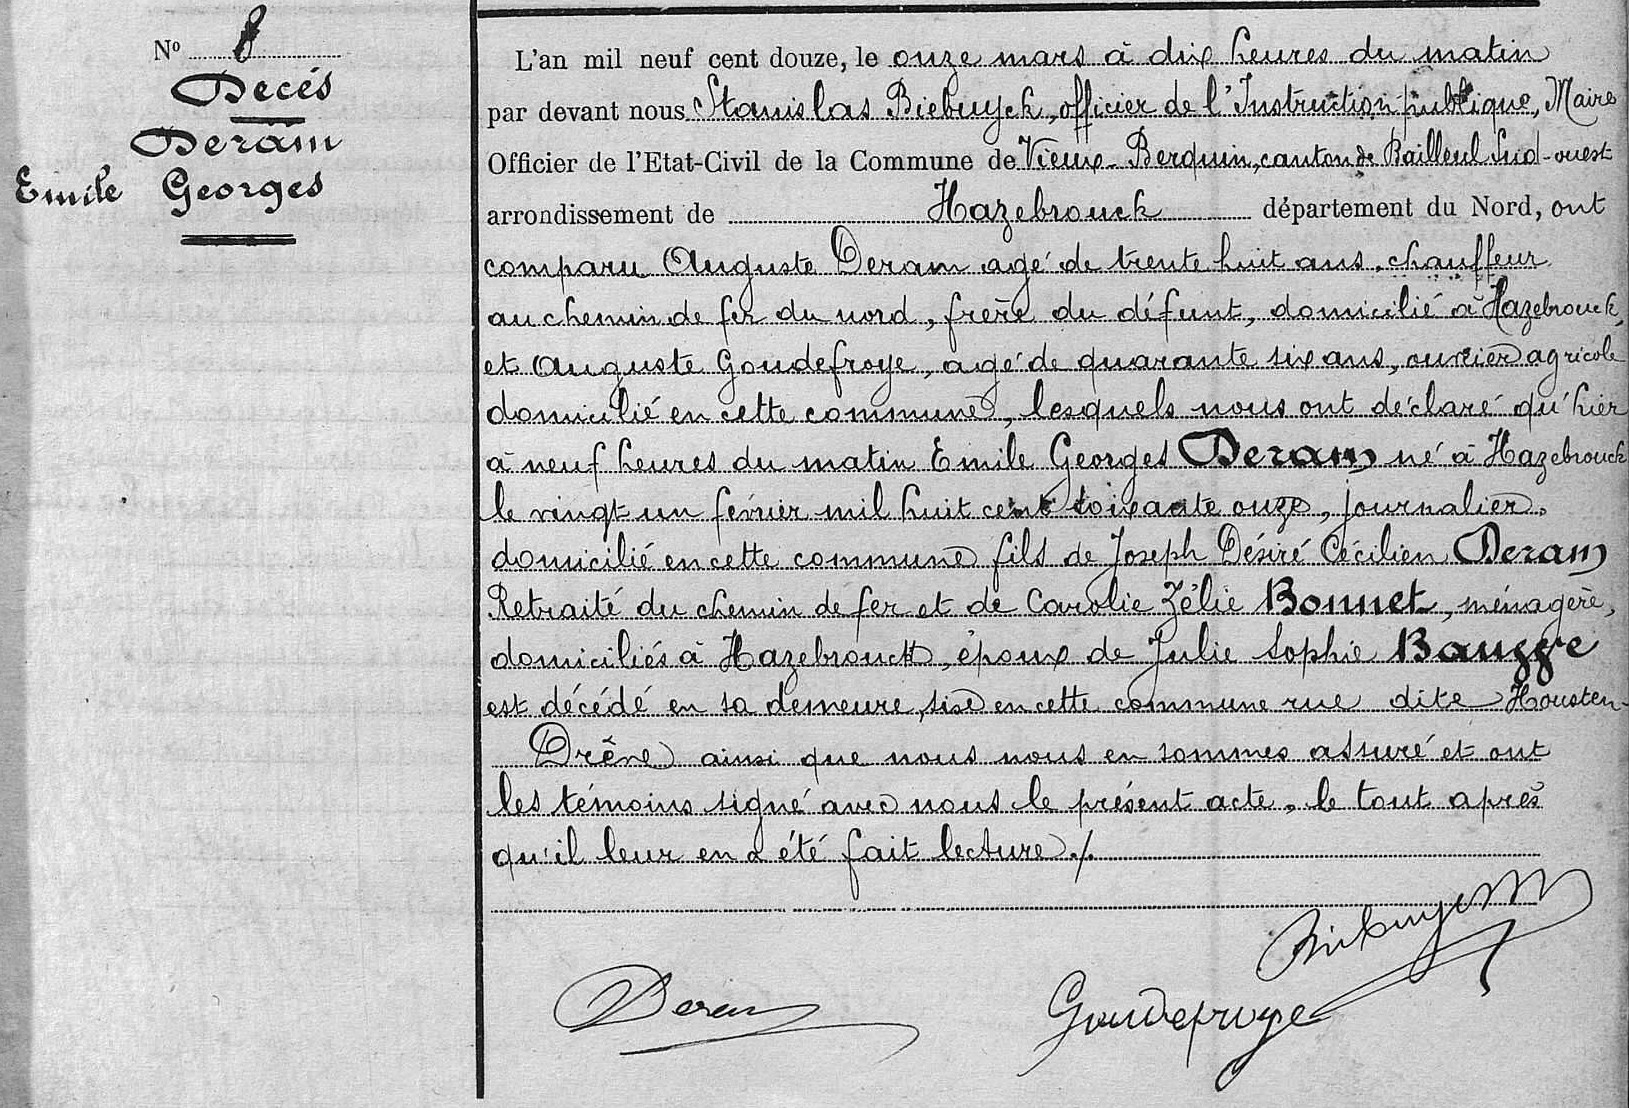 N° 8
Decés
Deram
Emile Georges
L'an mil neuf cent douze, le onze mars à dix heures du matin
par devant nous Stanislas Biebuyck, officier de l'Instruction publique, Maire
Officier de l'Etat-Civil de la Commune de Vieux-Berquin, canton de Bailleul Sud-ouest
arrondissement de Hazebrouck département du Nord, ont
comparu Auguste Deram agé de trente huit ans, chauffeur
au chemin de fer du nord, frère du défunt, domicilié à Hazebrouck,
et Auguste Goudefroye, agé de quarante six ans, ouvrier agricole
domicilié en cette commune, lesquels nous ont déclaré qu'hier
à neuf heures du matin Emile Georges Deram né à Hazebrouck
le vingt un février mil huit cent soixante onze, journalier,
domicilié en cette commune fils de Joseph Désiré Cécilien Deram
Retraité du chemin de fer et de Carolie Zélie Bonnet, ménagère,
domiciliés à Hazebrouck, époux de Julie Sophie
est décédé en sa demeure, sise en cette commune rue dite Housten-
Drêve ainsi que nous nous en sommes assuré et ont
les témoins signé avec nous le présent acte, le tout après
qu'il leur en a été fait lecture ./.
Biebuyck
Deram
Goudefroye